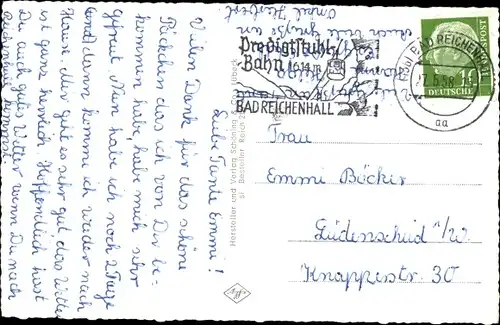 Liebe Tante Emmi!
Vielen Dank für das schöne
Päckchen das ich von Dir be-
kommen habe, habe mich sehr
gefreut. Nun habe ich noch 2 Tage
und dann komme ich wieder nach
Haus. Mir geht es sehr gut das Wetter
ist ganz herrlich. Hoffentlich hast
Du auch gutes Wetter wenn Du nach
kommst.
Onkel Herbert.
Predigtstuhl
Bahn 1614 m
BAD REICHENHALL
BAD REICHENHALL
aa
DEUTSCHE
BUNDESPOST
Hersteller und Verlag Schöning & Co., Lübeck
Bestellnr. Reich
Frau
Emmi Böcker
Lüdenscheid i/W.
Knapperstr. 30